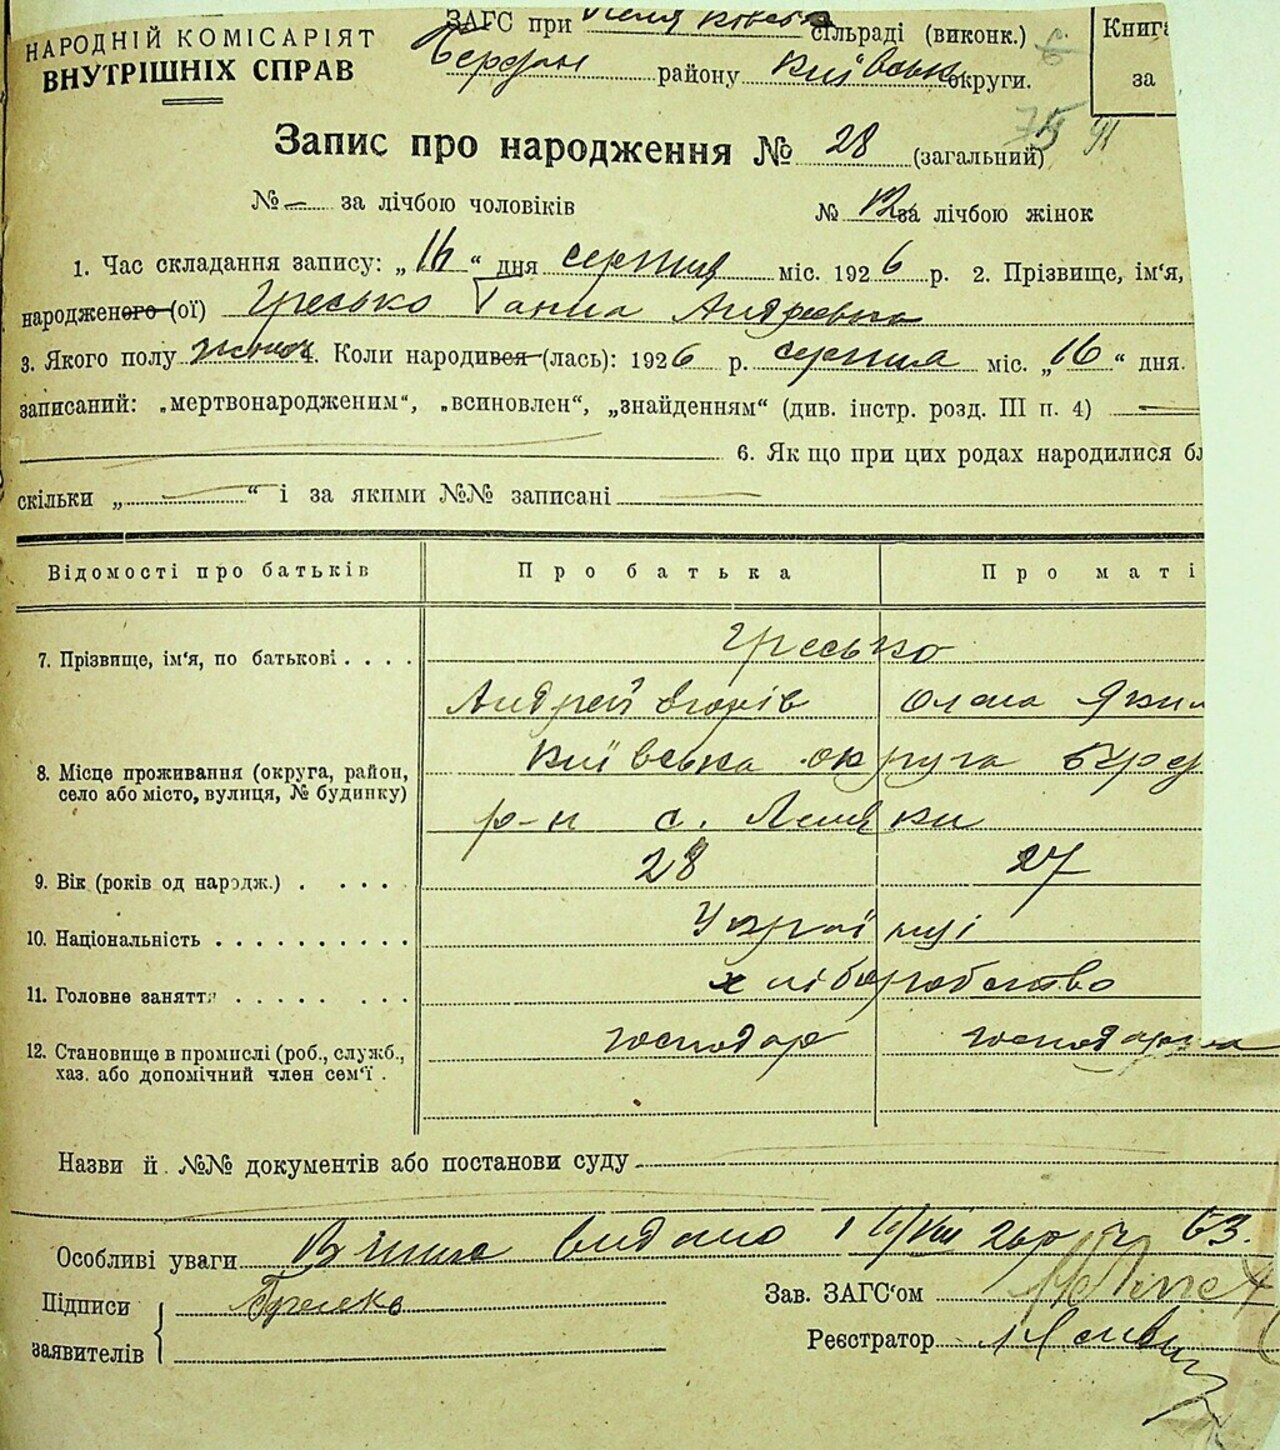 НАРОДНІЙ КОМІСАРІЯТ
ВНУТРІШНІХ СПРАВ
ЗАГС при сільраді (виконк.)
району Київськ округи.
Книга
за
Запис про народження № 28 (загальний)
№ — за лічбою чоловіків № 12 за лічбою жінок
1. Час складання запису: „16“ дня серпня міс. 1926 р. 2. Прізвище, ім‘я,
народженого (ої) Гресько Ганна Андреевна
3. Якого полу жіноч 4. Коли народився (лась): 1926 р. серпня міс. „16“ дня.
записаний: „мертвонародженим“, „всиновлен“, „знайденням“ (див. інстр. розд. III п. 4) —
6. Як що при цих родах народилися бл
скільки „ — “ і за якими №№ записані —
Відомості про батьків Про батька Про маті
7. Прізвище, ім‘я, по батькові . . . . Гресько
Андрей Ігорів Олена Яким
8. Місце проживання (округа, район,
село або місто, вулиця, № будинку)
Київська округа
р-н с. Лемяки
9. Вік (років од народж.) . . . . 28 27
10. Національність . . . . . . . . . . Українці
11. Головне заняття . . . . . . . . хліборобство
12. Становище в промислі (роб., служб.,
хаз. або допомічний член сем‘ї .
господар господарка
Назви й №№ документів або постанови суду
Особливі уваги Витяг видано 16/VIII 26 р № 63.
Підписи
заявителів
Гресько
Зав. ЗАГС‘ом
Реєстратор